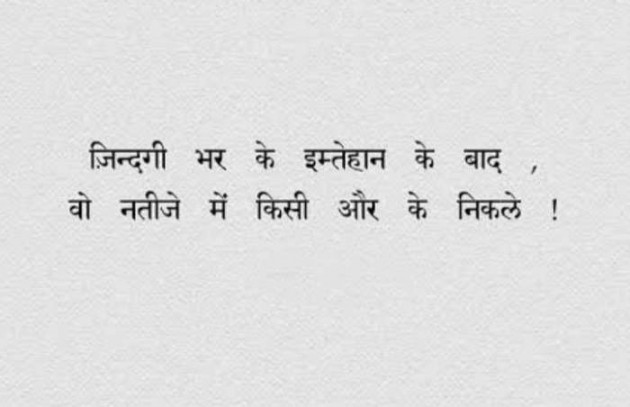 ज़िन्दगी भर के इम्तेहान के बाद ,
वो नतीजे में किसी और के निकले !